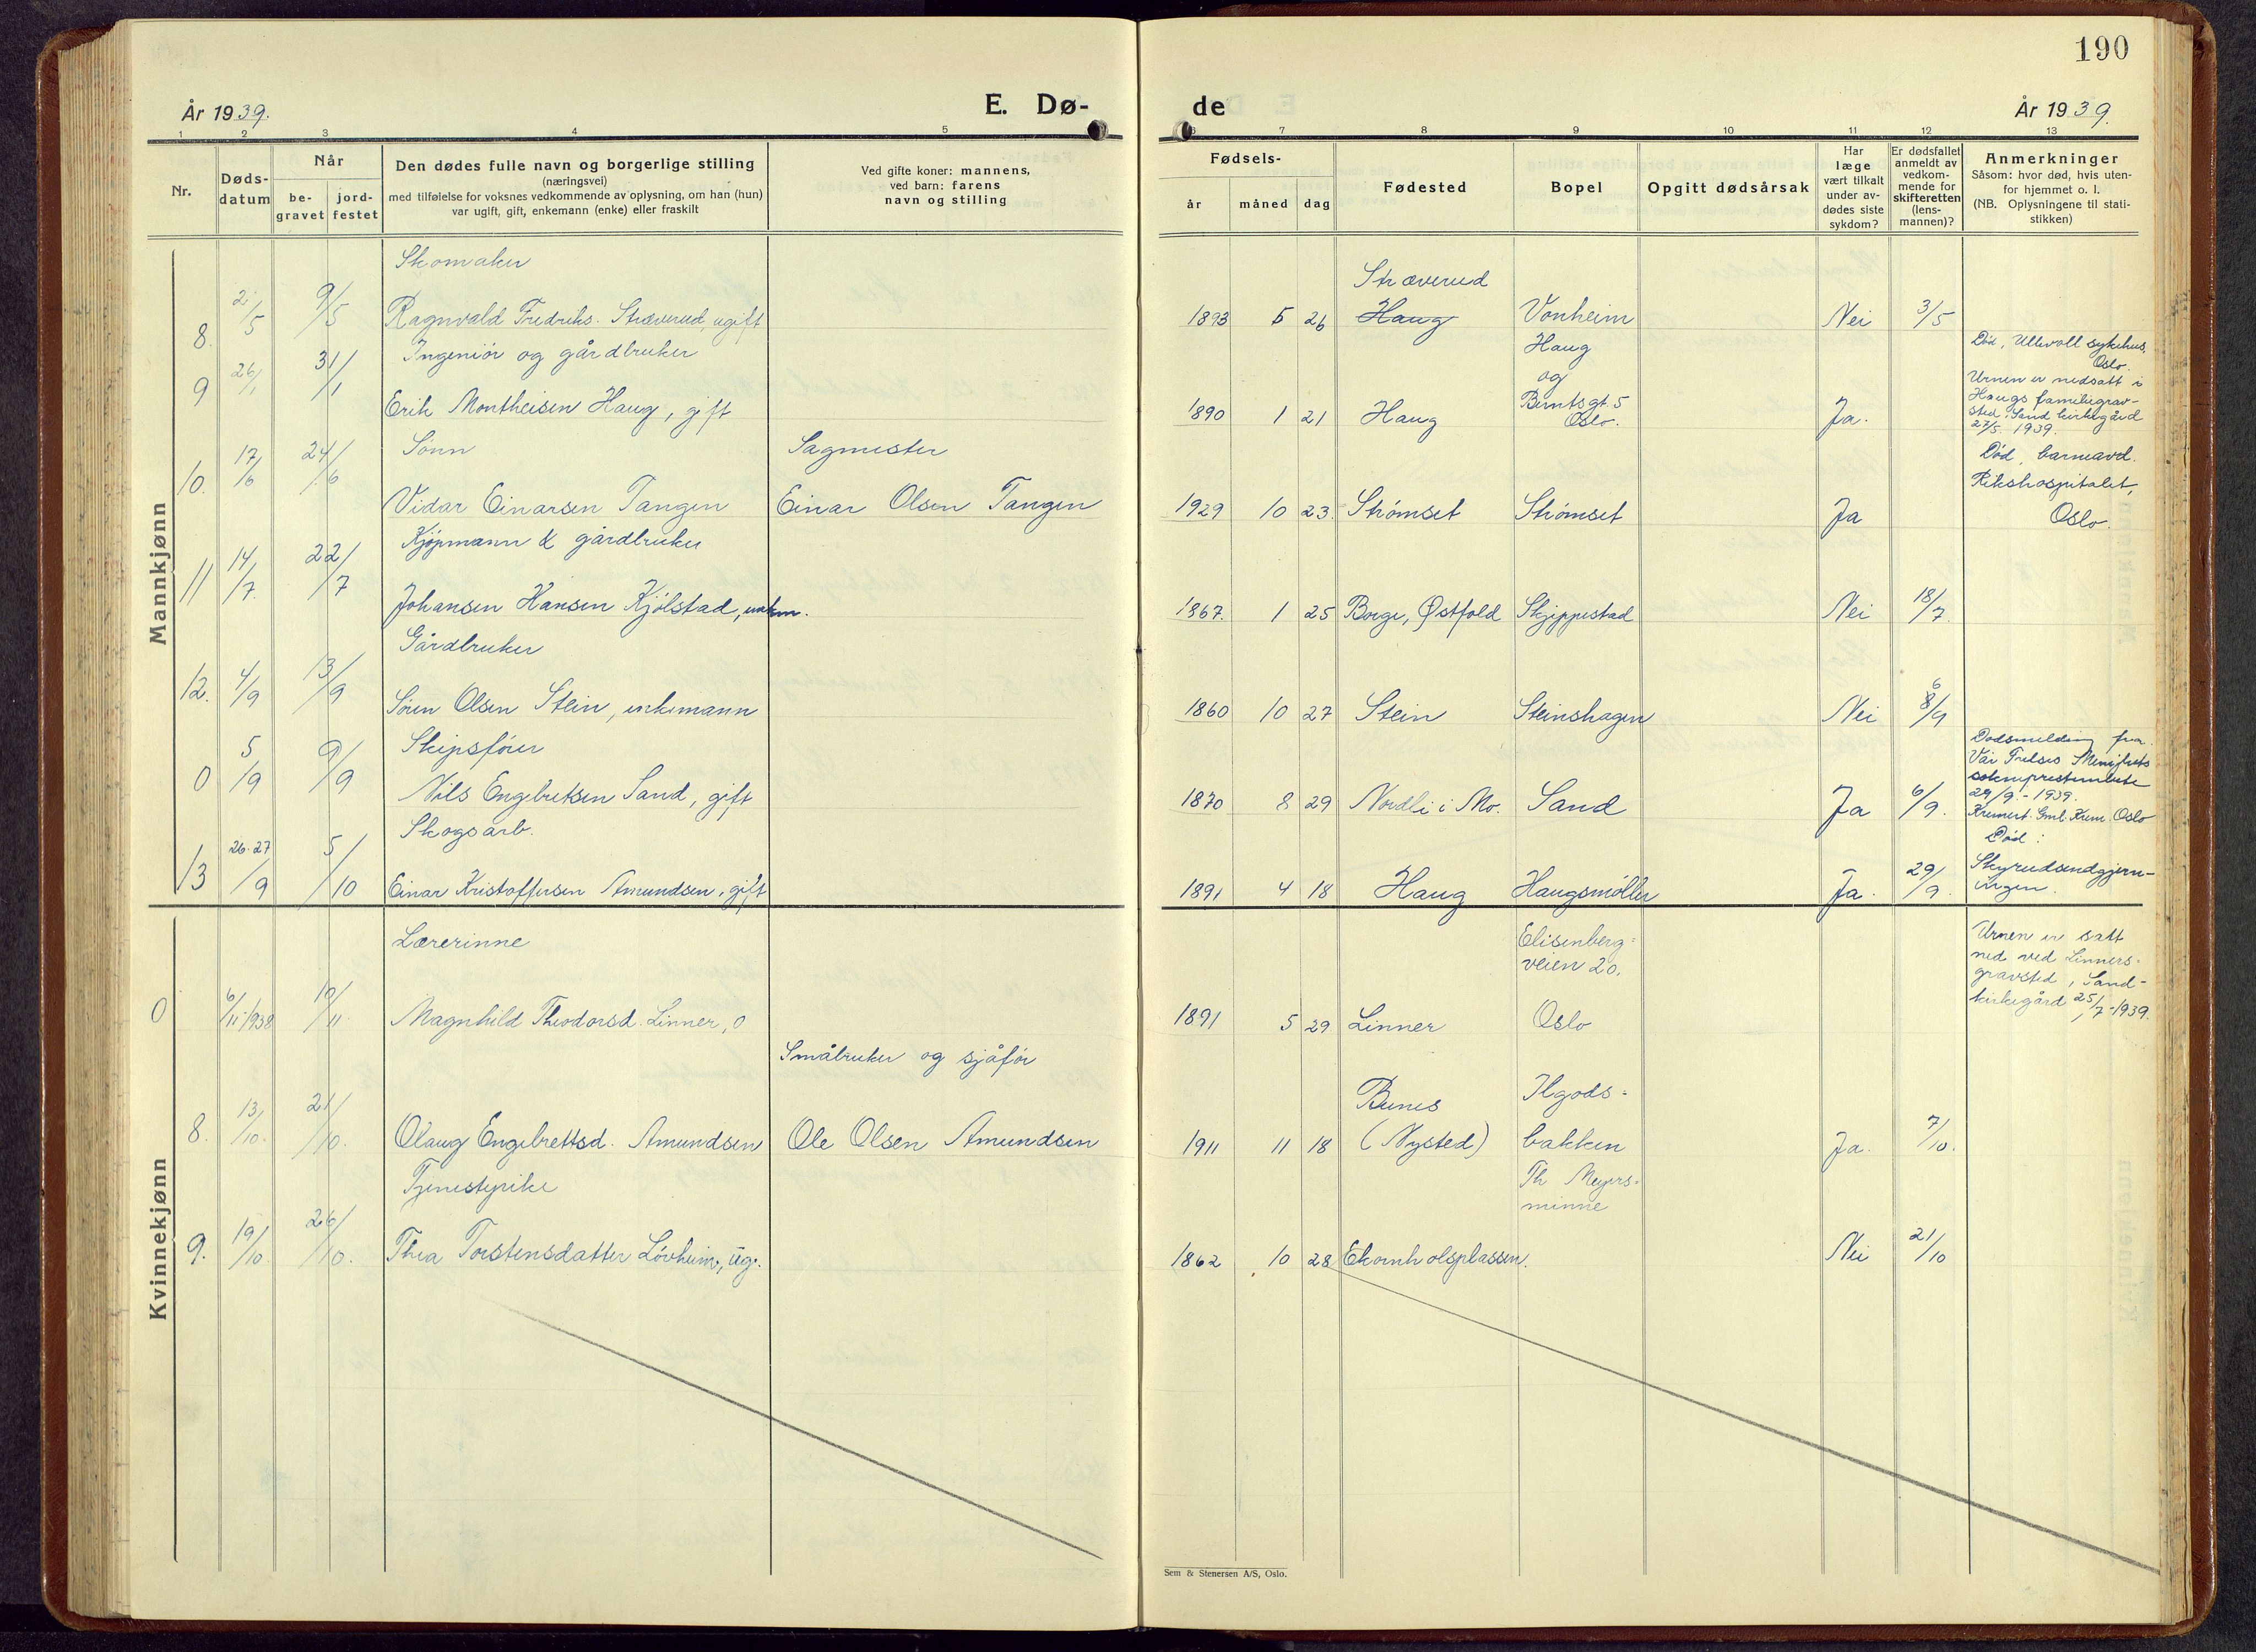 190
År 1939.
E. Dø-
de
År 1939.
1 2 3 4 5
6 7 8 9 10 11 12 13
Nr.
Døds-
datum
Når
be-
gravet
jord-
festet
Den dødes fulle navn og borgerlige stilling
(næringsvei)
med tilføielse for voksnes vedkommende av oplysning, om han (hun)
var ugift, gift, enkemann (enke) eller fraskilt
Ved gifte koner: mannens,
ved barn: farens
navn og stilling
Fødsels-
år måned dag
Fødested
Bopel
Opgitt dødsårsak
Har
læge
vært tilkalt
under av-
dødes siste
sykdom?
Er dødsfallet
anmeldt av
vedkom-
mende for
skifteretten
(lens-
mannen)?
Anmerkninger
Såsom: hvor død, hvis uten-
for hjemmet o. l.
(NB. Oplysningene til stati-
stikken)
Mannkjønn
Skomaker
Stræverud
8. 2/5 9/5 Ragnvald Fredriks. Stræverud, ugift 1893 5 26 Haug Vonheim Nei 3/5
Ingeniör og gårdbruker
Haug
og
Død, Ullevoll sykehus,
Oslo.
9 26/1 31/1 Erik Montheisen Haug, gift 1890 1 21 Haug Berntsgt. 5
Oslo. Ja.
Urnen er nedsatt i
Haugs familiegrav-
sted, Sand kirkegård
27/5. 1939.
Sönn Sagmester
10. 17/6 24/6 Vidar Einarsen Tangen Einar Olsen Tangen 1929 10 23. Strömset Strömset Ja
Död, barneavd.
Rikshospitalet,
Oslo.
Kjøpmann & gårdbruker
11 14/7. 22/7 Johansen Hansen Kjölstad, enkm. 1867. 1 25 Borge, Østfold Skjippestad Nei 18/7.
Gårdbruker
12. 4/9 13/9 Sören Olsen Stein, enkemann 1860 10 27 Stein Steinshagen Nei 6/9
Skipsförer
0 5/9 9/9 Nils Engebretsen Sand, gift 1870 8 29 Nordli i Mo. Sand Ja 6/9.
Dodsmelding fra
Vår Frelses Menighets
sokneprestembete
29/9. - 1939.
Kremert. Gml. Krem. Oslo
Skogsarb.
13 26-27/9 5/10 Einar Kristoffersen Amundsen, gift 1891 4 18 Haug Haugsmöller Ja. 29/9.
Död:
Skyrudsendgjern-
ingen.
Kvinnekjønn
Lærerinne
Elisenberg-
veien 20.
0 6/11-1938 10/11. Magnhild Theodorsd. Linner, 0 1891 5 29 Linner Oslo
Urnen er satt
ned ved Linners-
gravsted, Sand-
kirkegård 25/7-1939.
Småbruker og sjåför
Bunes Ilgods-
8. 13/10. 21/10. Olaug Engebrettsd. Amundsen Ole Olsen Amundsen 1911 11 18 (Nysted) bakken Ja. 7/10.
Tjenestepike
Th Meyers-
minne
9. 19/10. 26/10. Thea Torstensdatter Lövheim, ug. 1862 10 28 Ekornholsplassen. Nei 21/10
Sem & Stenersen A/S, Oslo.